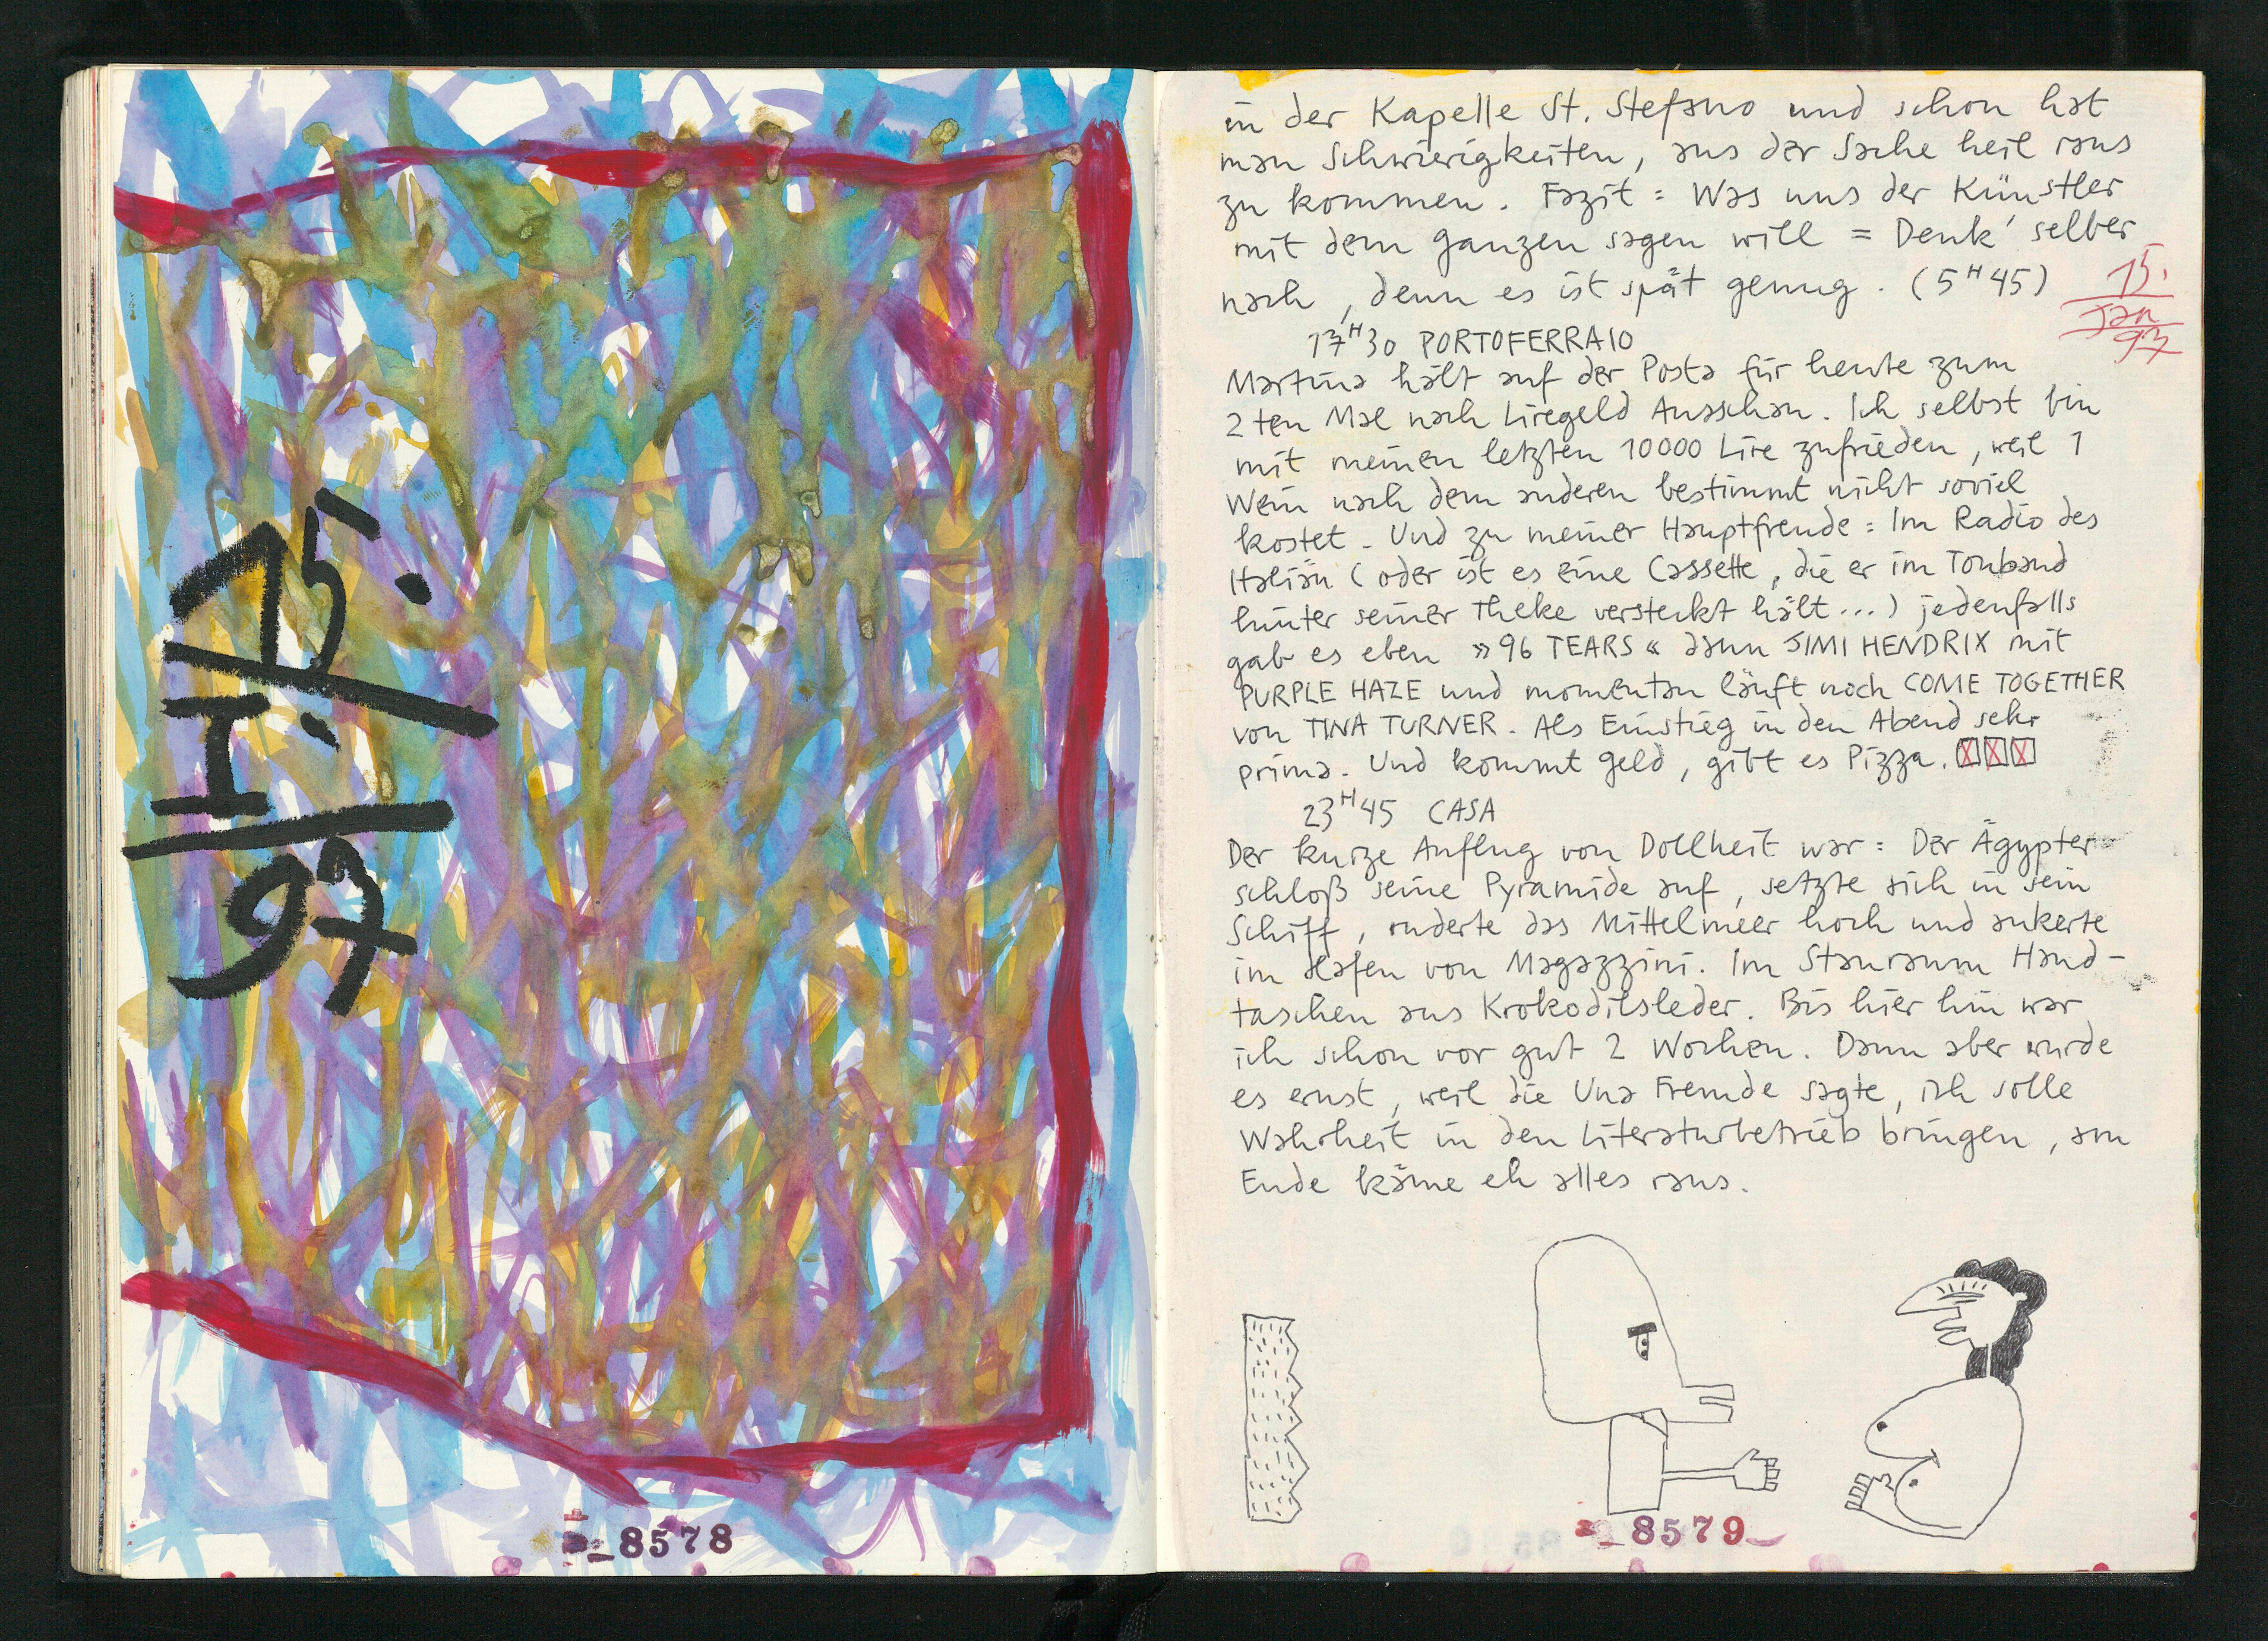 15.
I.
97
8578
in der Kapelle St. Stefano und schon hat
man Schwierigkeiten, aus der Sache heil raus
zu kommen. Fazit: Was uns der Künstler
mit dem ganzen sagen will = Denk' selber
nach, denn es ist spät genug. (5H45)
15.
Jan
97
17H30 PORTOFERRAIO
Martina hält auf der Posta für heute zum
2ten Mal nach Liregeld Ausschau. Ich selbst bin
mit meinen letzten 10000 Lire zufrieden, weil 1
Wein nach dem anderen bestimmt nicht soviel
kostet. Und zu meiner Hauptfreude: Im Radio des
Italiän (oder ist es eine Cassette, die er im Tonband
hinter seiner Theke versteckt hält...) jedenfalls
gab es eben »96 TEARS« dann JIMI HENDRIX mit
PURPLE HAZE und momentan läuft noch COME TOGETHER
von TINA TURNER. Als Einstieg in den Abend sehr
prima. Und kommt Geld, gibt es Pizza.
23H45 CASA
Der kurze Anflug von Dollheit war: Der Ägypter
schloß seine Pyramide auf, setzte sich in sein
Schiff, ruderte das Mittelmeer hoch und ankerte
im Hafen von Magazzini. Im Stauraum Hand-
taschen aus Krokodilsleder. Bis hier hin war
ich schon vor gut 2 Wochen. Dann aber wurde
es ernst, weil die Una Fremde sagte, ich solle
Wahrheit in den Literaturbetrieb bringen, am
Ende käme eh alles raus.
8579